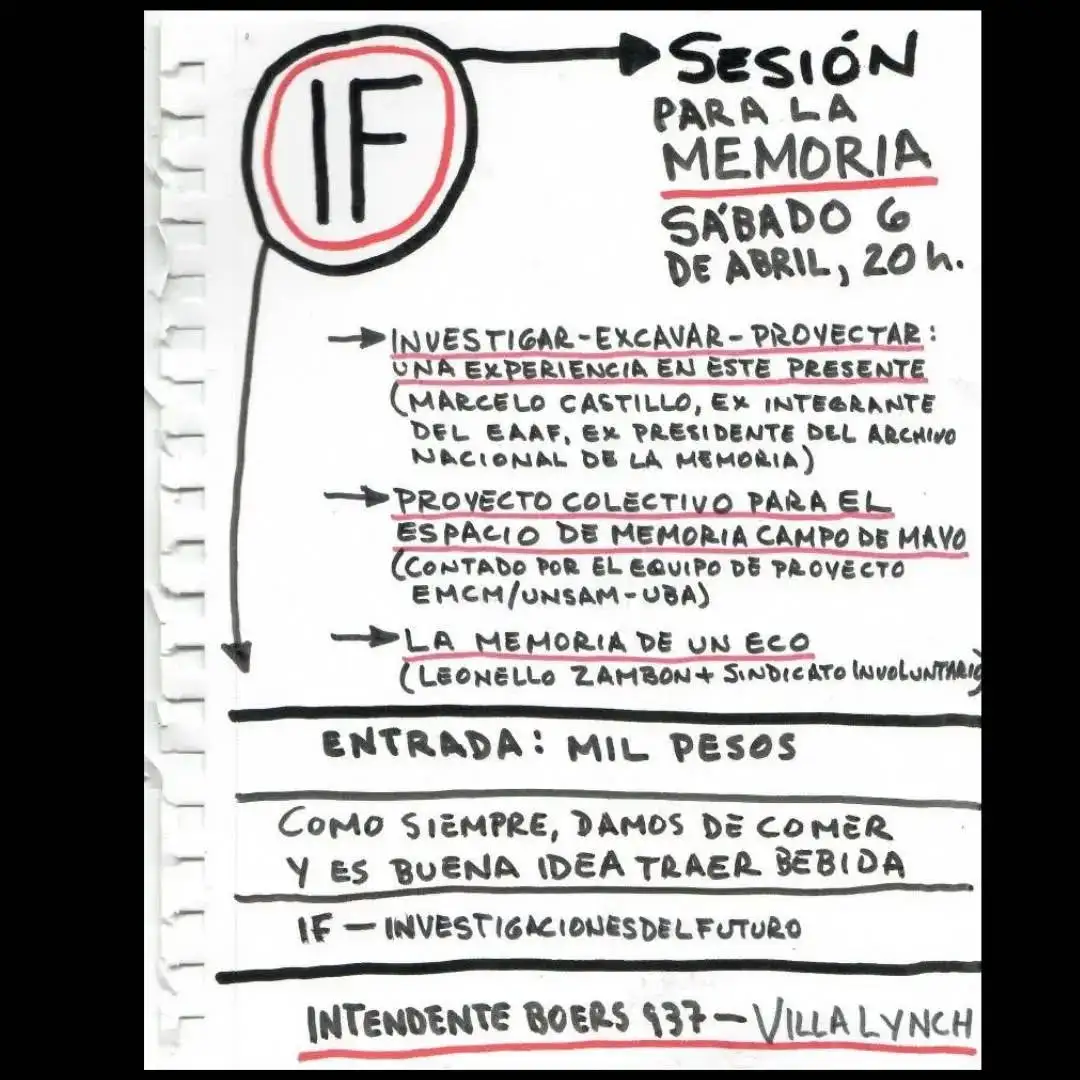 IF
SESIÓN
PARA LA
MEMORIA
SÁBADO 6
DE ABRIL, 20 h.
INVESTIGAR-EXCAVAR-PROYECTAR:
UNA EXPERIENCIA EN ESTE PRESENTE
(MARCELO CASTILLO, EX INTEGRANTE
DEL EAAF, EX PRESIDENTE DEL ARCHIVO
NACIONAL DE LA MEMORIA)
PROYECTO COLECTIVO PARA EL
ESPACIO DE MEMORIA CAMPO DE MAYO
(CONTADO POR EL EQUIPO DE PROYECTO
EMCM/UNSAM-UBA)
LA MEMORIA DE UN ECO
(LEONELLO ZAMBON + SINDICATO INVOLUNTARIO)
ENTRADA: MIL PESOS
COMO SIEMPRE, DAMOS DE COMER
Y ES BUENA IDEA TRAER BEBIDA
IF — INVESTIGACIONESDELFUTURO
INTENDENTE BOERS 937 — VILLA LYNCH